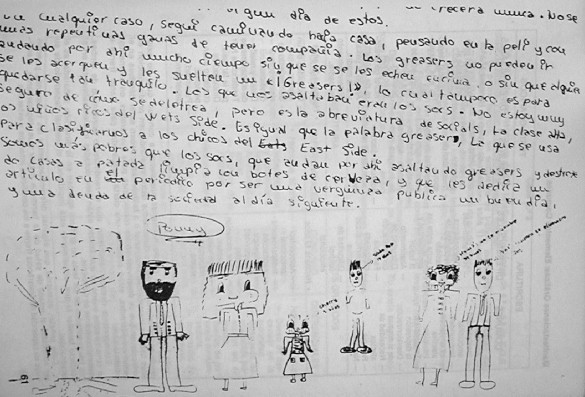 algun día de estos. crecera nunca. No se
En cualquier caso, segui caminando hacia casa, pensando en la peli y con
unas repentinas ganas de tener compañia. Los greasers no pueden ir
andando por ahi mucho tiempo sin que se les echen encima, o sin que alguien
se les acerque y les suelten un «¡Greasers!», lo cual tampoco es para
quedarse tan tranquilo. Los que nos asaltaban eran los socs. No estoy muy
seguro de como se deletrea, pero es la abreviatura de socials, La clase alta,
los niños ricos del Wets Side. Es igual que la palabra greaser, La que se usa
Para clasificarnos a los chicos del East Side.
Somos más pobres que los socs, que andan por ahi asaltando greasers y destroza
do casas a patada limpia con botes de cerveza, y que les dedica un
articulo en el periodico por ser una verguinza publica un buen dia,
y una deuda de la sociedad al día siguiente.
Ponny
19